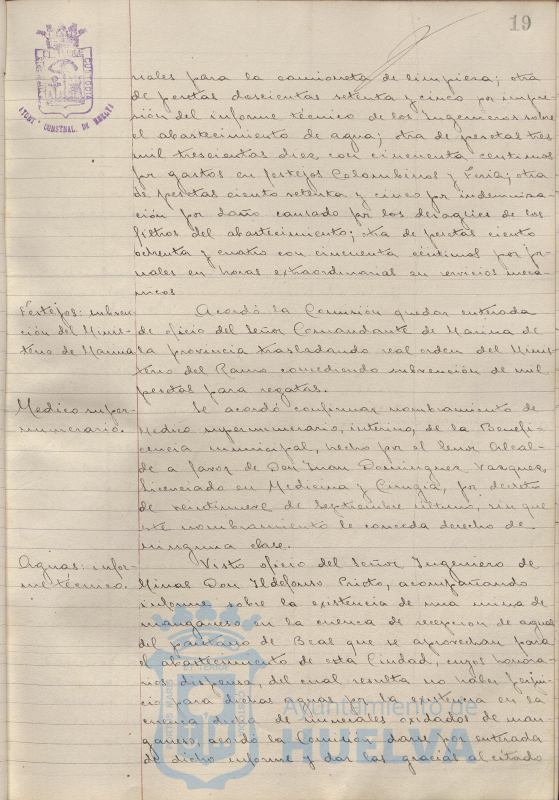 19
AYUNT. CONSTNAL. DE HUELVA
CUSTODIA
nales para la camioneta de limpieza; otra
de pesetas doscientas setenta y cinco por impre-
sión del informe técnico de los Ingenieros sobre
el abastecimiento de agua; otra de pesetas tres
mil trescientas diez con cincuenta centimos
por gastos en festejos Colombinos y Feria; otra
de pesetas ciento setenta y cinco por indemniza-
ción por daño causado por los desagües de los
filtros del abastecimiento; otra de pesetas ciento
ochenta y cuatro con cincuenta centimos por jor-
nales en horas extraordinarias en servicios mecá-
nicos.
Festejos: subven-
ción del Minis-
terio de Marina
Acordó la Comisión quedar enterada
de oficio del Señor Comandante de Marina de
la provincia trasladando real orden del Minis-
terio del Ramo concediendo subvención de mil
pesetas para regatas.
Medico super-
numerario.
Se acordó confirmar nombramiento de
Medico supernumerario, interino, de la Benefi-
cencia municipal, hecho por el Señor Alcal-
de a favor de Don Juan Dominguez Vazquez,
Licenciado en Medicina y Cirugía, por decreto
de veintinueve de Septiembre ultimo, sin que
este nombramiento le conceda derecho de
ninguna clase.
Aguas: infor-
me técnico.
Visto oficio del Señor Ingeniero de
Minas Don Ildefonso Prieto, acompañando
informe sobre la existencia de una mina de
manganeso en la cuenca de recepcion de aguas
del pantano de Beas que se aprovechan para
el abastecimiento de esta Ciudad, cuyos honora-
rios dispensa, del cual resulta no haber perjui-
cio para dichas aguas por la existencia en la
cuenca dicha de minerales oxidados de man-
ganeso, acordó la Comisión darse por enterada
de dicho informe y dar las gracias al citado
Ayuntamiento de
HUELVA